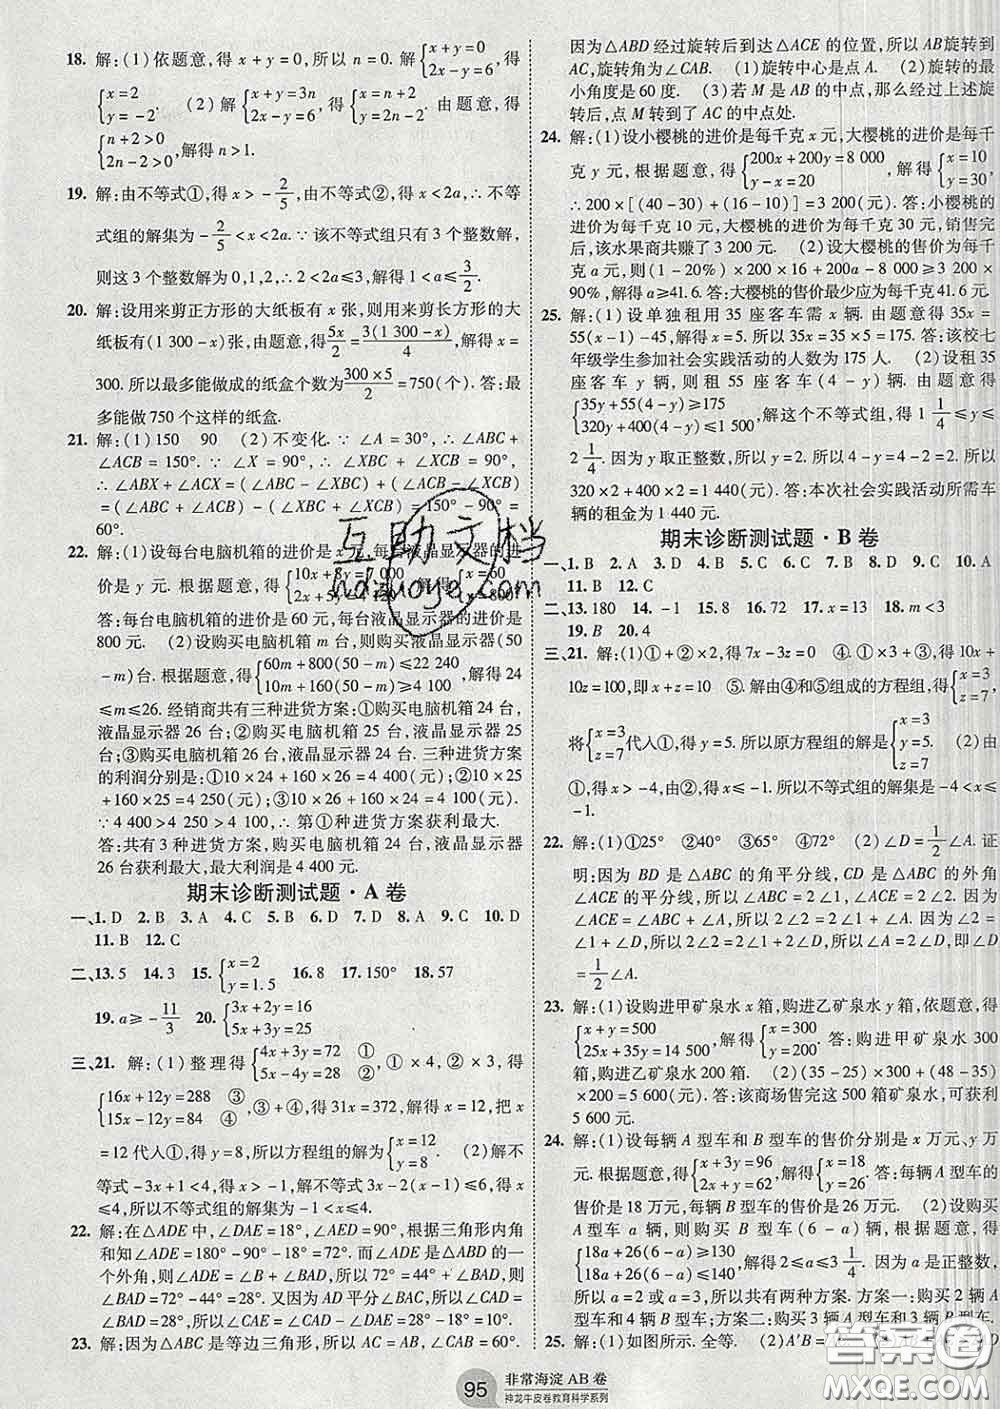 18. 解:(1)依题意,得 x+y=0,所以 n=0. 解{x+y=0 2x-y=6,得
{x=2 y=-2. (2)解{x+y=3n 2x-y=6,得{x=n+2 y=2n-2. 由题意,得
{n+2>0 2n-2>0,解得 n>1.
19. 解:由不等式①,得 x>-2/5,由不等式②,得 x<2a,∴不等
式组的解集为-2/5<x<2a.∵该不等式组只有 3 个整数解,
则这 3 个整数解为 0,1,2,∴2<2a≤3,解得 1<a≤3/2.
20. 解:设用来剪正方形的大纸板有 x 张,则用来剪长方形的大
纸板有(1 300-x)张,由题意,得5x/2=3(1 300-x)/4,解得 x=
300. 所以最多能做成的纸盒个数为300×5/2=750(个). 答:最
多能做 750 个这样的纸盒.
21. 解:(1)150 90 (2)不变化.∵∠A=30°,∴∠ABC+
∠ACB=150°.∵∠X=90°,∴∠XBC+∠XCB=90°,
∴∠ABX+∠ACX=(∠ABC-∠XBC)+(∠ACB-∠XCB)
=(∠ABC+∠ACB)-(∠XBC+∠XCB)=150°-90°=
60°.
22. 解:(1)设每台电脑机箱的进价是 x 元,每台液晶显示器的进
价是 y 元. 根据题意,得{10x+8y=7 000 2x+5y=4 120,解得{x=60 y=800
答:每台电脑机箱的进价是 60 元,每台液晶显示器的进价是
800 元. (2)设购买电脑机箱 m 台,则购买液晶显示器(50
-m)台. 根据题意,得{60m+800(50-m)≤22 240 10m+160(50-m)≥4 100,解得 24
≤m≤26. 经销商共有三种进货方案:①购买电脑机箱 24 台,
液晶显示器 26 台;②购买电脑机箱 25 台,液晶显示器 25
台;③购买电脑机箱 26 台,液晶显示器 24 台. 三种进货方案
的利润分别是:①10×24+160×26=4 400(元);②10×25
+160×25=4 250(元);③10×26+160×24=4 100(元).
∵4 400>4 250>4 100,∴第①种进货方案获利最大.
答:共有三种进货方案,购买电脑机箱 24 台、液晶显示器
26 台获利最大,最大利润是 4 400 元.
期末诊断测试题·A 卷
一、1. D 2. B 3. A 4. C 5. D 6. B 7. D 8. A 9. C 10. D
11. B 12. C
二、13. 5 14. 3 15. {x=2 y=1.5 16. 8 17. 150° 18. 57
19. a≥-11/3 20. {3x+2y=16 5x+3y=25
三、21. 解:(1)整理得{4x+3y=72 ① 5x-4y=28 ②,①×4,②×3,得
{16x+12y=288 ③ 15x-12y=84 ④,③+④,得 31x=372,解得 x=12,把 x
=12 代入①,得 y=8,所以方程组的解为{x=12 y=8. (2)解不
等式-3x+1<4,得 x>-1,解不等式 3x-2(x-1)≤6,得 x
≤4,所以不等式组的解集为-1<x≤4.
22. 解:在△ADE 中,∠DAE=18°,∠AED=90°,根据三角形内角
和知∠ADE=180°-90°-18°=72°. 而∠ADE 是△ABD 的一
个外角,则∠ADE=∠B+∠BAD,所以 72°=44°+∠BAD,则
∠BAD=72°-44°=28°. 又因为 AD 平分∠BAC,所以∠CAD=
∠BAD=28°,所以∠CAE=∠CAD-∠DAE=28°-18°=10°.
23. 解:因为△ABC 是等边三角形,所以 AC=AB,∠CAB=60°.
因为△ABD 经过旋转后到达△ACE 的位置,所以 AB旋转到
AC,旋转角为∠CAB. (1)旋转中心是点 A. (2)旋转的最
小角度是 60 度. (3)若 M 是 AB 的中点,那么经过上述旋
转后,点 M 转到了 AC 的中点处.
24. 解:(1)设小樱桃的进价是每千克 x 元,大樱桃的进价是每千
克 y 元,根据题意,得{200x+200y=8 000 y-x=20,解得{x=10 y=30,
∴200×[(40-30)+(16-10)]=3 200(元). 答:小樱桃的
进价为每千克 10 元,大樱桃的进价为每千克 30 元,销售完
后,该水果商共赚了 3 200 元. (2)设大樱桃的售价为每千
克 a 元,则(1-20%)×200×16+200a-8 000≥3 200×
90%,解得 a≥41.6. 答:大樱桃的售价最少应为每千克 41.6 元.
25. 解:(1)设单独租用 35 座客车需 x 辆. 由题意得 35x=
55(x-1)-45,解得 x=5. 所以 35x=35×5=175. 答:该校七
年级学生参加社会实践活动的人数为 175 人. (2)设租 35
座客车 y 辆,则租 55 座客车(4-y)辆. 由题意得
{35y+55(4-y)≥175 320y+400(4-y)≤1 500,解这个不等式组,得 1 1/4≤y≤
2 1/4. 因为 y 取正整数,所以 y=2. 所以 4-y=4-2=2. 所以
320×2+400×2=1 440(元). 答:本次社会实践活动所需车
辆的租金为 1 440 元.
期末诊断测试题·B 卷
一、1. B 2. A 3. D 4. D 5. D 6. B 7. B 8. C 9. C 10. A
11. B 12. C
二、13. 180 14. -1 15. 8 16. 72 17. x=13 18. m<3
19. B 20. 4
三、21. 解:(1)①+②×2,得 7x-3z=0 ④. ①×3+③,得 10x+
10z=100,即 x+z=10 ⑤. 解由④和⑤组成的方程组,得{x=3 z=7,
将{x=3 z=7代入①,得 y=5. 所以原方程组的解是{x=3 y=5. z=7 (2)由
①得,得 x>-4,由②得,得 x≤-1. 所以不等式组的解集是-4<x≤
-1.
22. 解:(1)①25° ②40° ③65° ④72° (2)∠D=1/2∠A. 证
明:因为 BD 是△ABC 的角平分线,CD 是△ABC 的外角
∠ACE 的平分线,所以∠ACE=2∠1,∠ABC=2∠2. 因为
∠ACE=∠ABC+∠A,所以 2∠1=2∠2+∠A. 因为∠2=
∠1+∠D,所以 2∠2=2∠1+2∠D,所以∠A=2∠D,即∠D
=1/2∠A.
23. 解:(1)设购进甲矿泉水 x 箱,购进乙矿泉水 y 箱,依题意,得
{x+y=500 25x+35y=14 500,解得{x=300 y=200. 答:购进甲矿泉水 300
箱,购进乙矿泉水 200 箱. (2)(35-25)×300+(48-35)
×200=5 600(元). 答:该商场售完这 500 箱矿泉水,可获利
5 600 元.
24. 解:(1)设每辆 A 型车和 B 型车的售价分别是 x 万元、y 万
元. 根据题意,得{x+3y=96 2x+y=62,解得{x=18 y=26. 答:每辆 A 型车的
售价是 18 万元,每辆 B 型车的售价是 26 万元. (2)设购买
A 型车 a 辆,则购买 B 型车(6-a)辆. 根据题意,得
{18a+26(6-a)≥130 18a+26(6-a)≤140,解得 2≤a≤3 1/4. 因为 a 是正整数,
所以 a=2 或 a=3. 所以共有两种方案. 方案一:购买 2 辆 A
型车和 4 辆 B 型车;方案二:购买 3 辆 A 型车和 3 辆 B 型车.
25. 解:(1)如图所示. 全等. (2)A′B=
互助文档
hdzuoye.com
答案卷
95 非常海淀 AB 卷
神龙牛皮卷教育科学系列